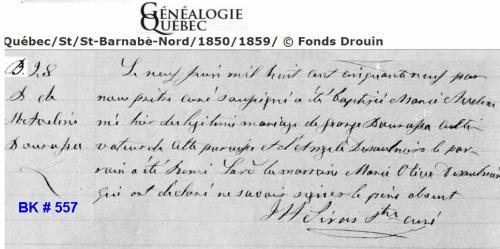 GÉNÉALOGIE
QUÉBEC
Québec/St/St-Barnabé-Nord/1850/1859/ © Fonds Drouin
B. 28
Le neuf juin mil huit cent cinquante neuf par
nous prêtre curé soussigné a été baptisé Marie
né hier du légitime mariage de George Bourassa culti
vateur de cette paroisse et d'Angèle Desaulniers le par
rain a été la marraine Marie Olive Desaulniers
qui ont déclaré ne savoir signer le père absent
Bourassa
BK # 557
Ptre curé